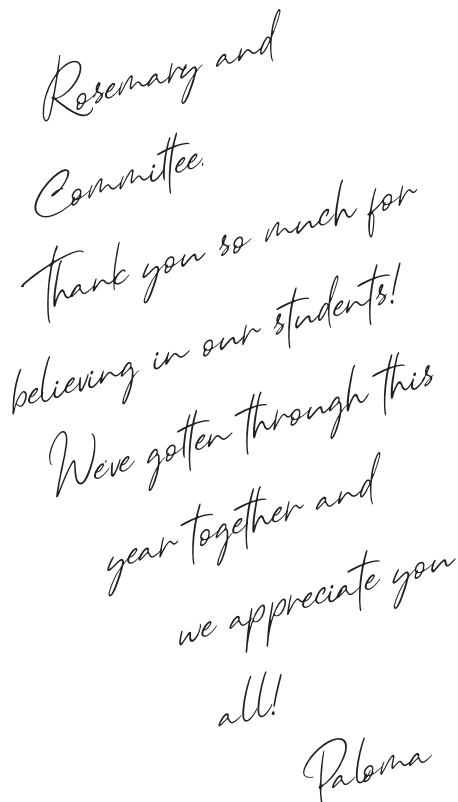 Rosemary and
Committee.
Thank you so much for
believing in our students!
We've gotten through this
year together and
we appreciate you
all!
Paloma